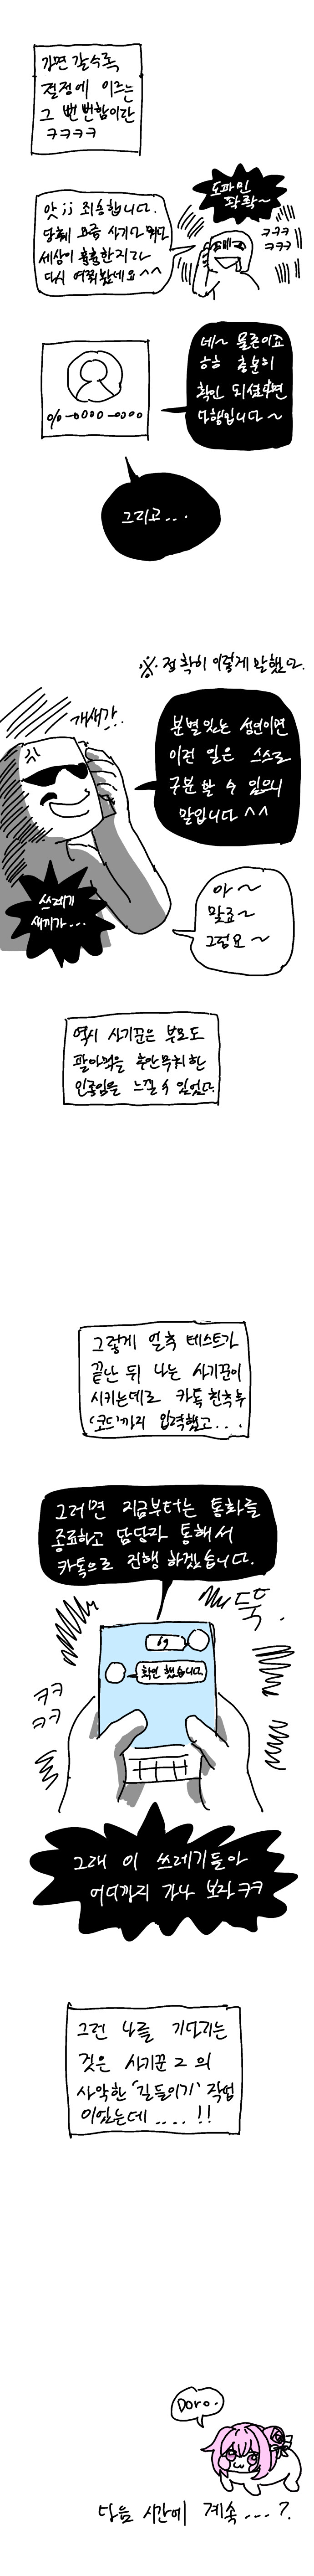 가면 갈수록
절정에 이르는
그 뻔뻔함이란
ㅋㅋㅋㅋ
도파민
좍좍~
앗;; 죄송합니다.
요즘 사기다 뭐다
세상이 흉흉한지라
다시 여쭤봤네요^^
ㅋㅋㅋ
ㅋㅋㅋ
네~ 물론이죠
ㅎㅎ 충분히
확인 되셨다면
다행입니다~
010-0000-0000
그리고...
※. 정확히 이렇게 말했다.
개새가..
분별있는 성인이면
이런 일은 스스로
구분할 수 있으니
말입니다^^
쓰레기
새끼가...
아~
맞죠~
그럼요~
역시 사기꾼은 부모도
팔아먹을 후안무치한
인종임을 느낄 수 있었다.
그렇게 일측 테스트가
끝난 뒤 나는 사기꾼이
시키는대로 카톡 친추후
'코드'까지 입력했고...
그러면 지금부터는 통화를
종료하고 담당자 통해서
카톡으로 진행 하겠습니다.
뚝.
69
확인 했습니다.
ㅋㅋ
ㅋㅋ
그래 이 쓰레기들아
어디까지 가나 보자ㅋㅋ
그런 나를 기다리는
것은 사기꾼 2 의
사악한 '길들이기' 작업
이었는데....!!
Doro.
다음 시간에 계속...?